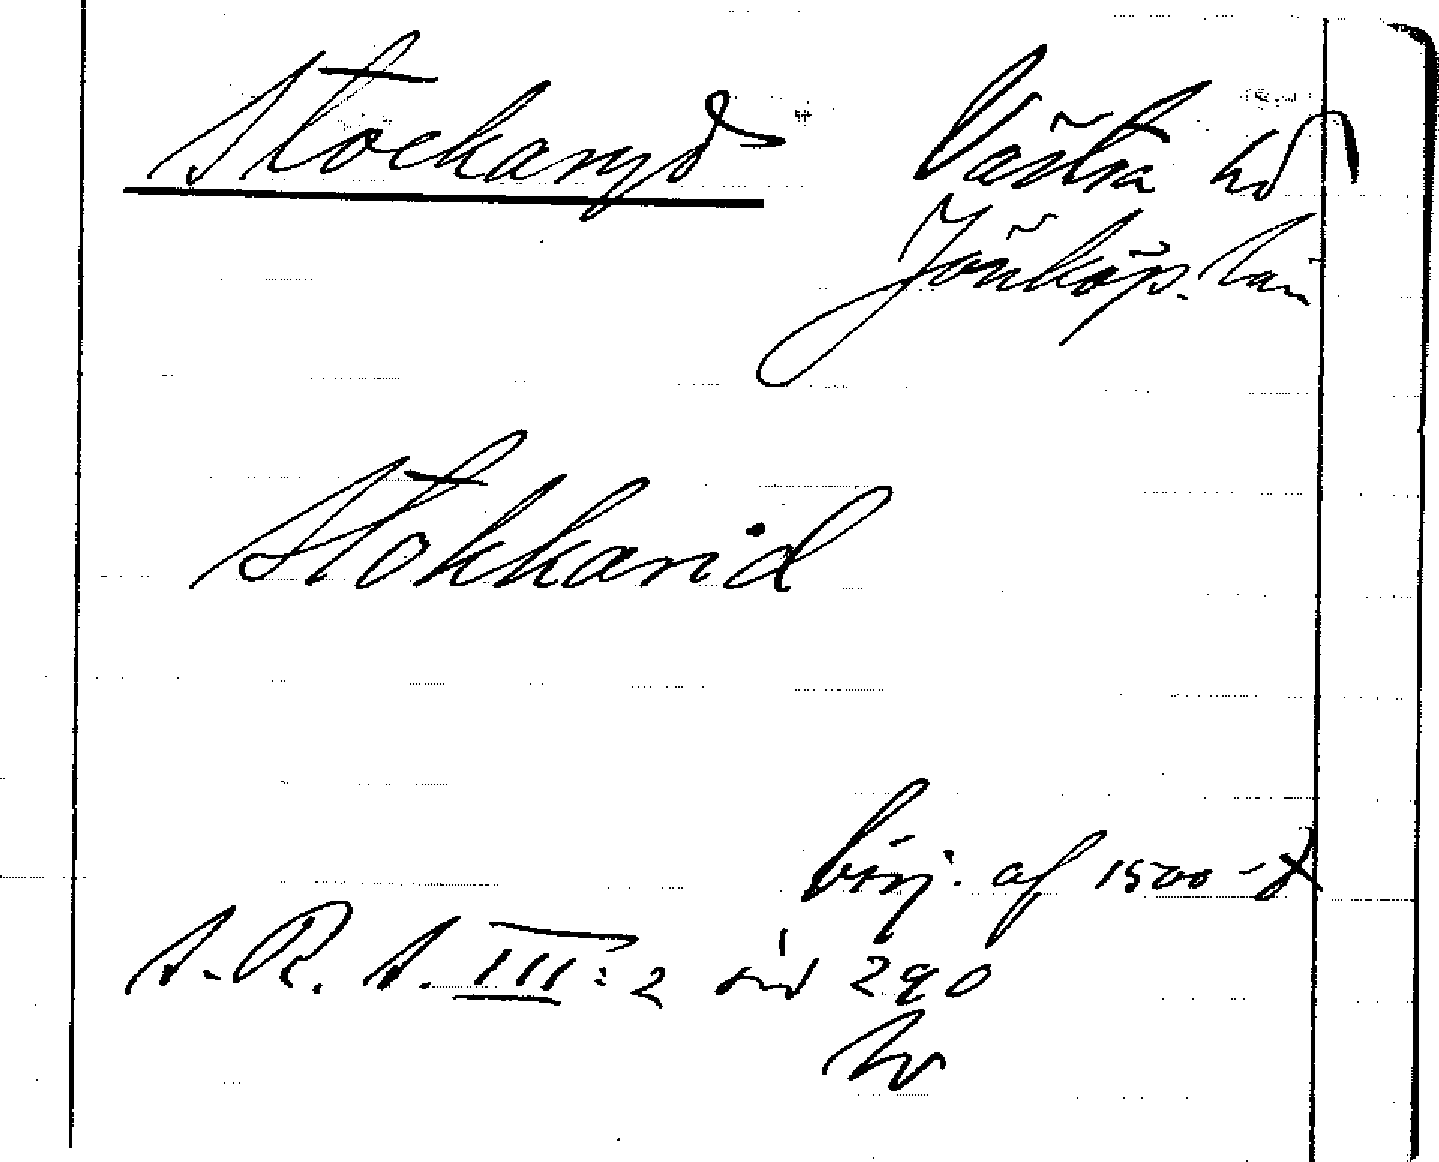 Stockaryd Västra hd
Jönköp. län
Stokkarid
börj. af 1500-t
S.R.A. III:2 sid 290